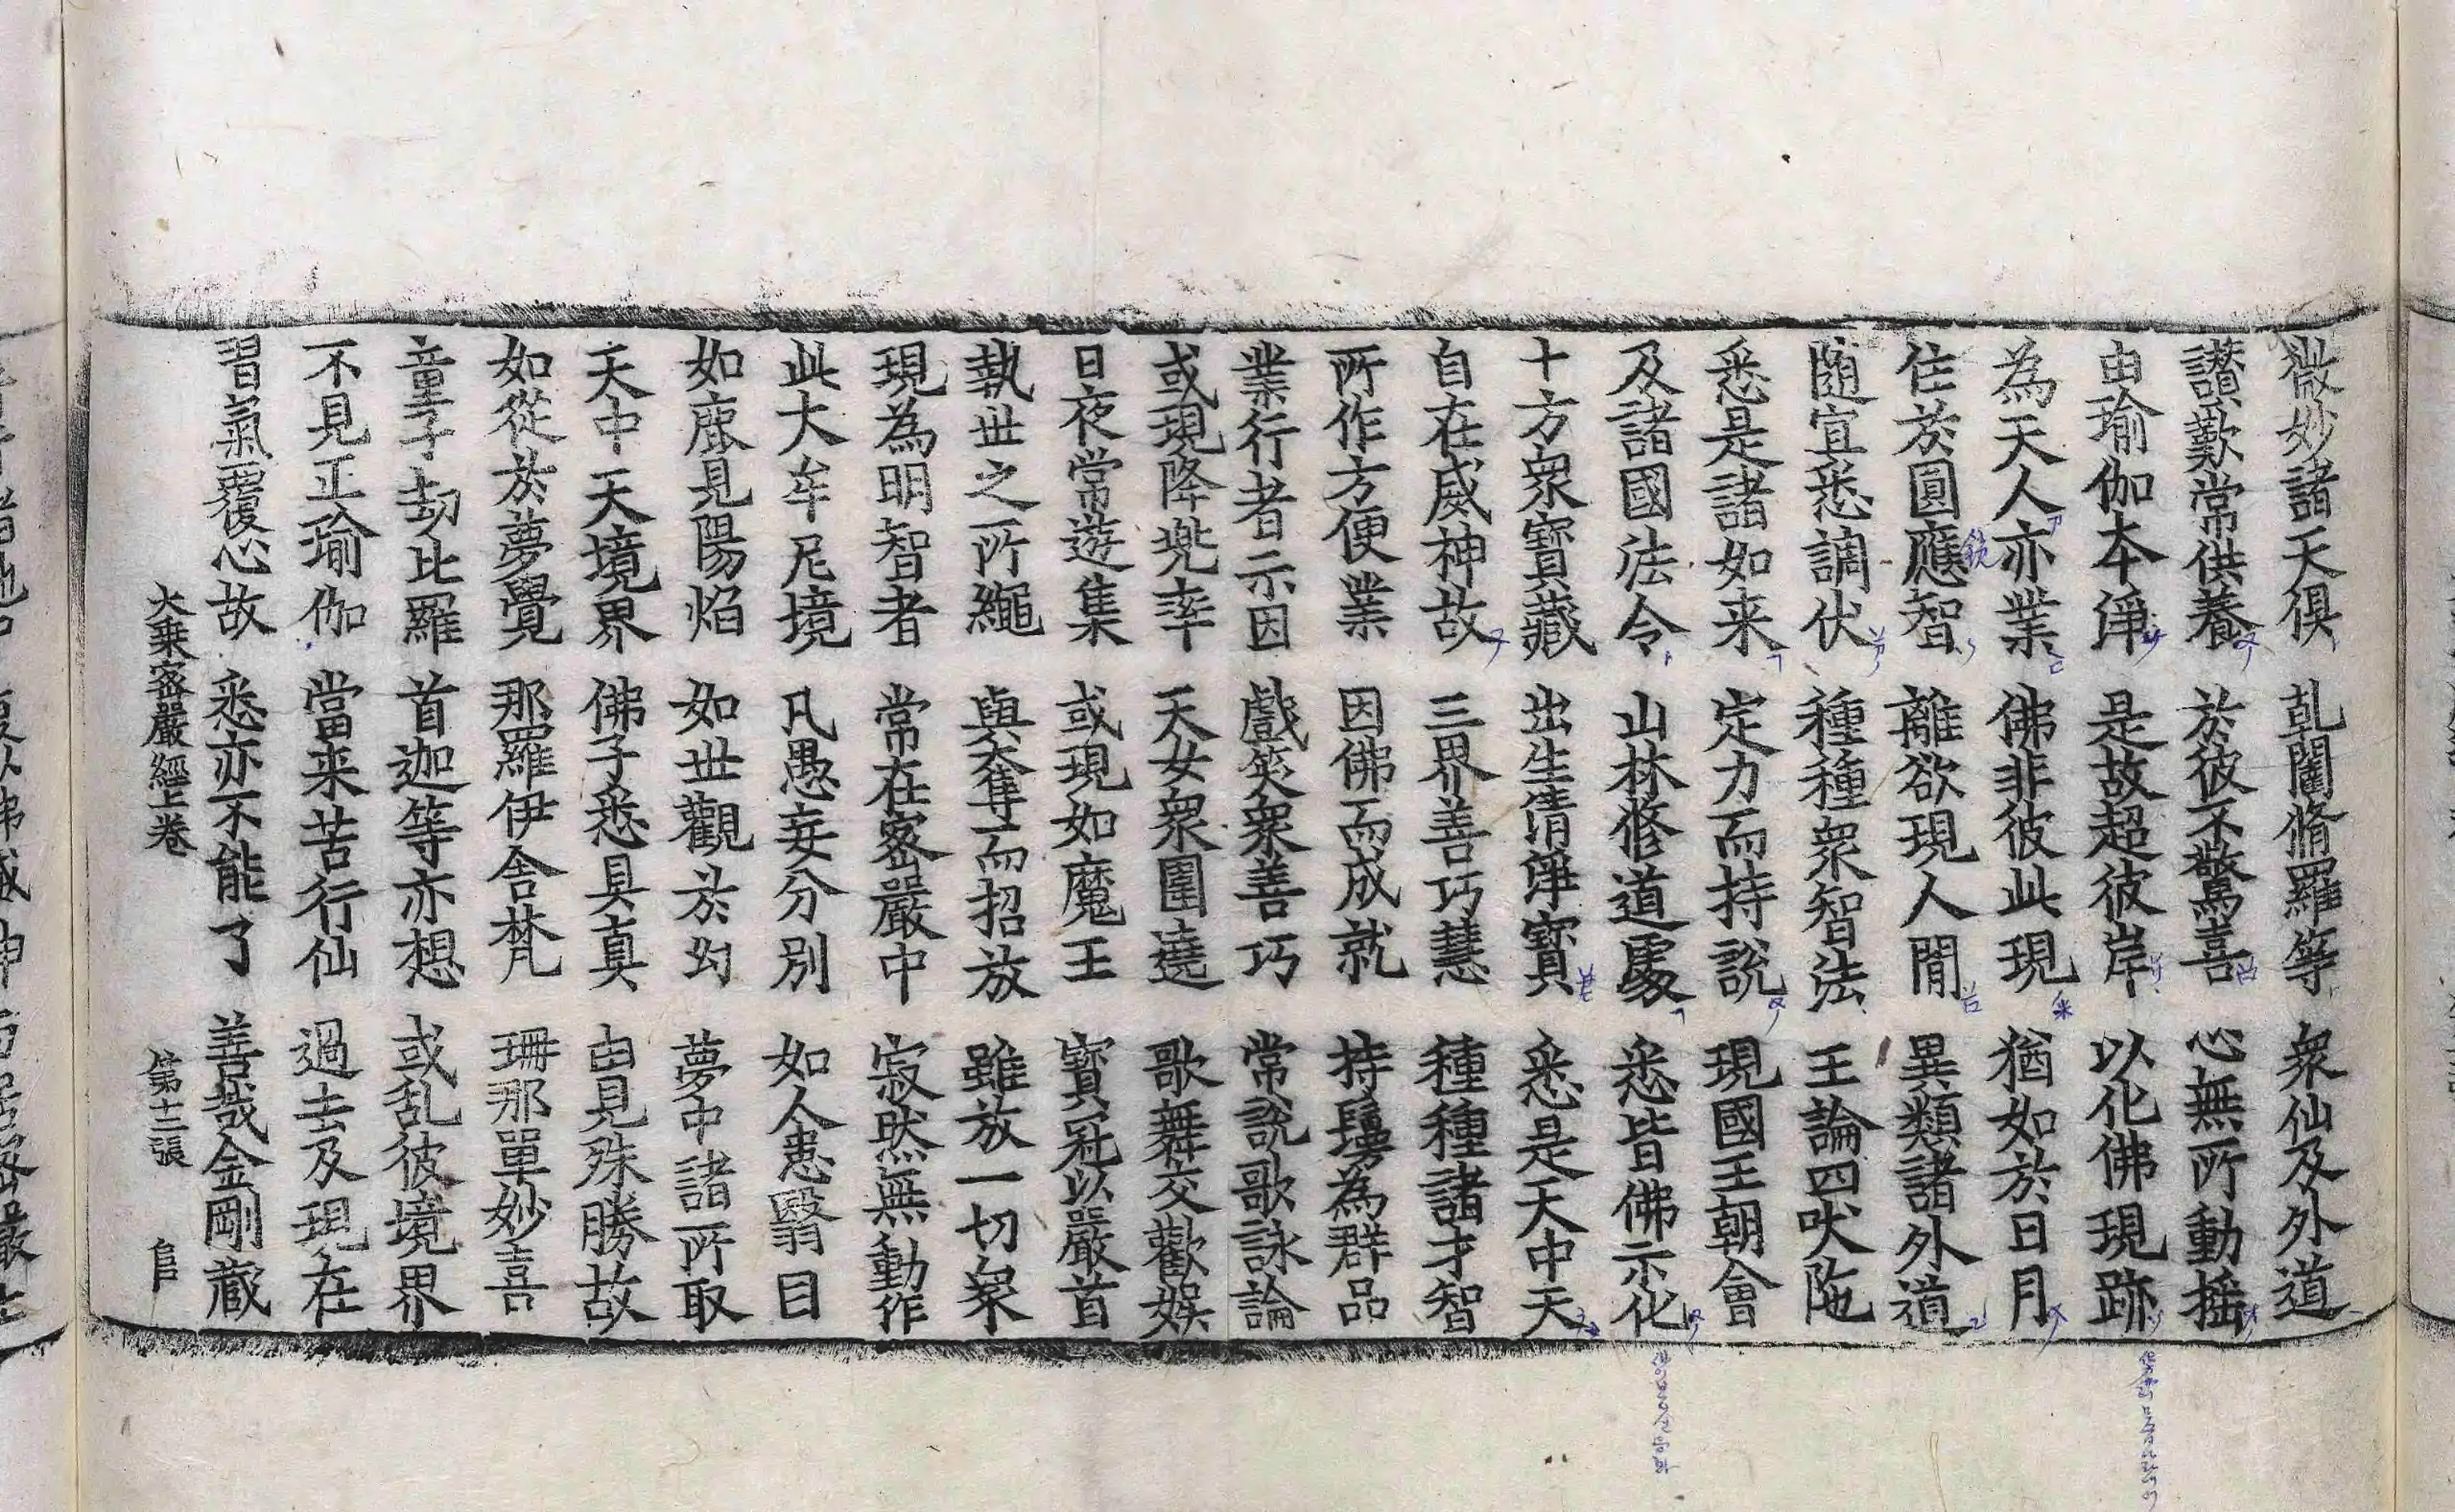 微妙諸天俱　乹闥脩羅等　衆仙及外道
讃歎常供養　於彼不驚喜　心無所動揺
由瑜伽本淨　是故超彼岸　以化佛現跡
為天人亦業　佛非彼此現　猶如於日月
住於圓應智　離欲現人閒　異類諸外道
随宜悉調伏　種種衆智法　王論四吠陁
悉是諸如来　定力而持說　現國王朝會
及諸國法令　山林修道處　悉皆佛示化
十方衆寶藏　出生清淨寶　悉是天中天
自在威神故　三界善巧慧　種種諸才智
所作方便業　因佛而成就　持鬘為群品
業行者示因　戲笑衆善巧　常說歌詠論
或現降兠率　天女衆圍遶　歌舞交歡娛
日夜常遊集　或現如魔王　寶冠以嚴首
執世之所繩　與奪而招放　雖放一切衆
現為明智者　常在密嚴中　寂然無動作
此大牟尼境　凡愚妄分別　如人患翳目
如鹿見陽焰　如世觀於幻　夢中諸所取
天中天境界　佛子悉具真　由見殊勝故
如從於夢覺　那羅伊舍梵　珊那單妙喜
童子劫比羅　首迦等亦想　或乱彼境界
不見正瑜伽　當来苦行仙　過去及現在
習氣覆心故　悉亦不能了　善哉金剛蔵
大乗密嚴經上卷　第十三張